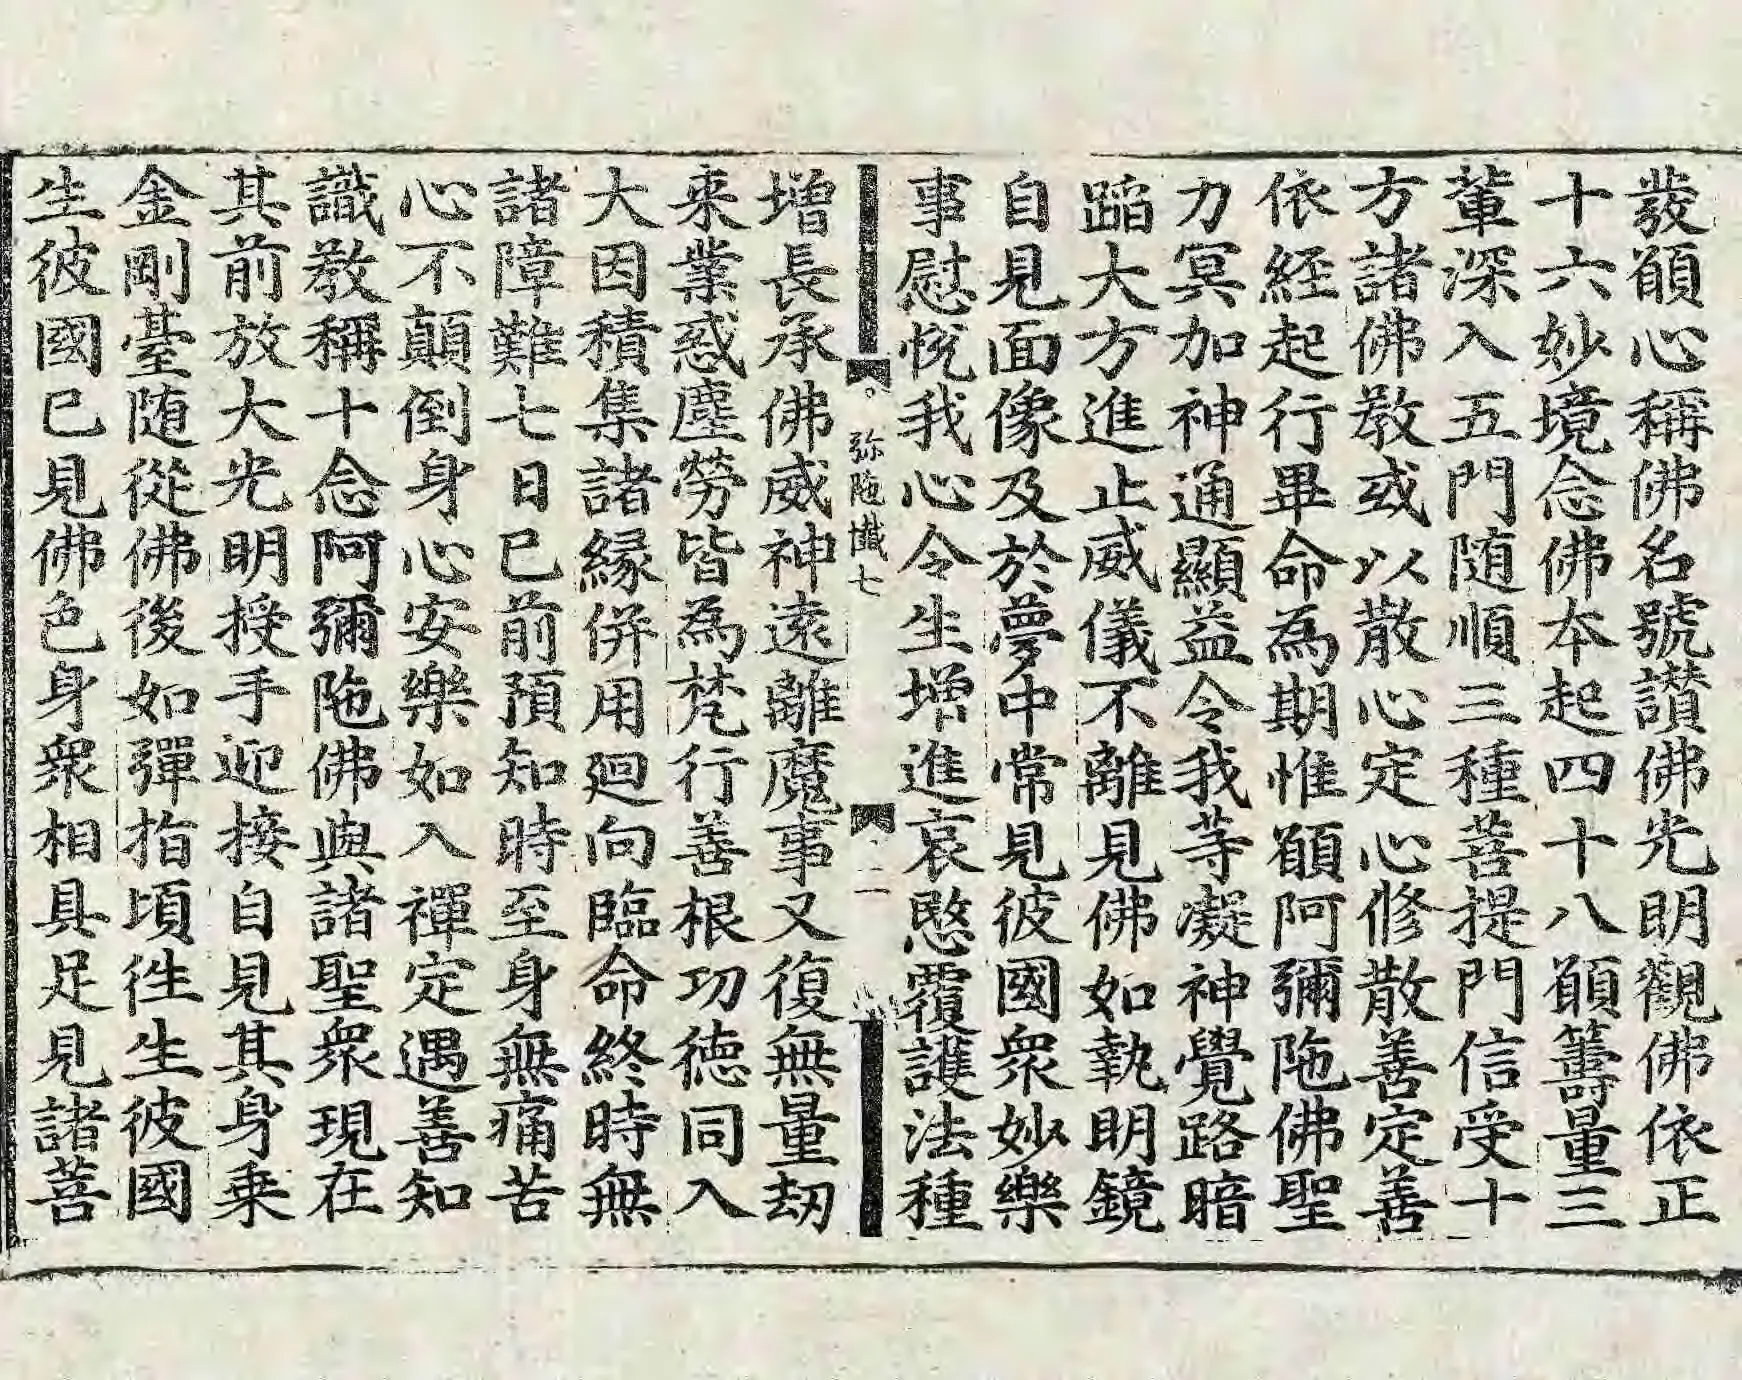 發願心稱佛名號讃佛光明觀佛依正
十六妙境念佛本起四十八願籌量三
輩深入五門随順三種菩提門信受十
方諸佛教或以散心定心修散善定善
依經起行畢命為期惟願阿彌陁佛聖
力冥加神通顯益令我等凝神覺路暗
蹈大方進止威儀不離見佛如執明鏡
自見面像及於夢中常見彼國衆妙樂
事慰悅我心令生增進哀愍覆護法種
弥陁懺七
二
增長承佛威神遠離魔事又復無量劫
来業惑塵勞皆為梵行善根功徳同入
大因積集諸緣併用廻向臨命終時無
諸障難七日已前預知時至身無痛苦
心不顛倒身心安樂如入禪定遇善知
識教稱十念阿彌陁佛與諸聖衆現在
其前放大光明授手迎接自見其身乗
金剛臺随從佛後如彈指頃徃生彼國
生彼國已見佛色身衆相具足見諸菩